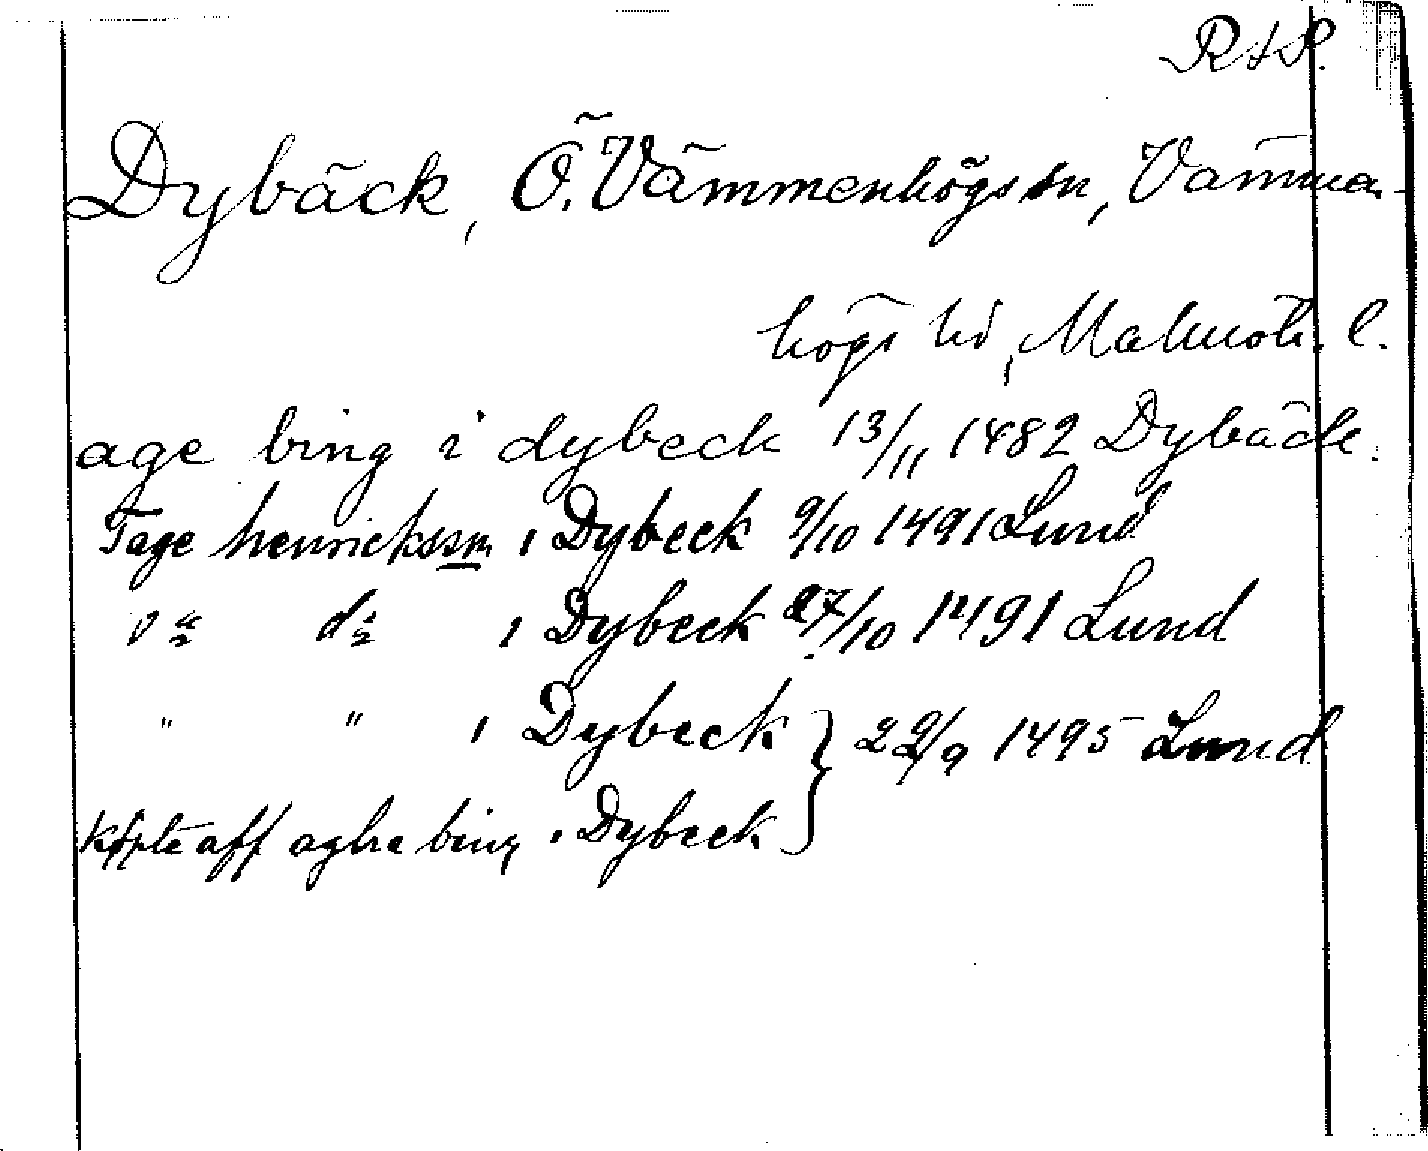 RAP.
Dybäck, Ö. Vämmenhögs sn, Vämmen-
högs hd, Malmöh. l.
age bing i dybeck 13/11 1482 Dybäck.
Tage henrickssøn i Dybeck 9/10 1491 Lund
do do i Dybeck 27/10 1491 Lund
" " i Dybeck } 22/9 1495 Lund
Køpte aff aghe bing i Dybeck